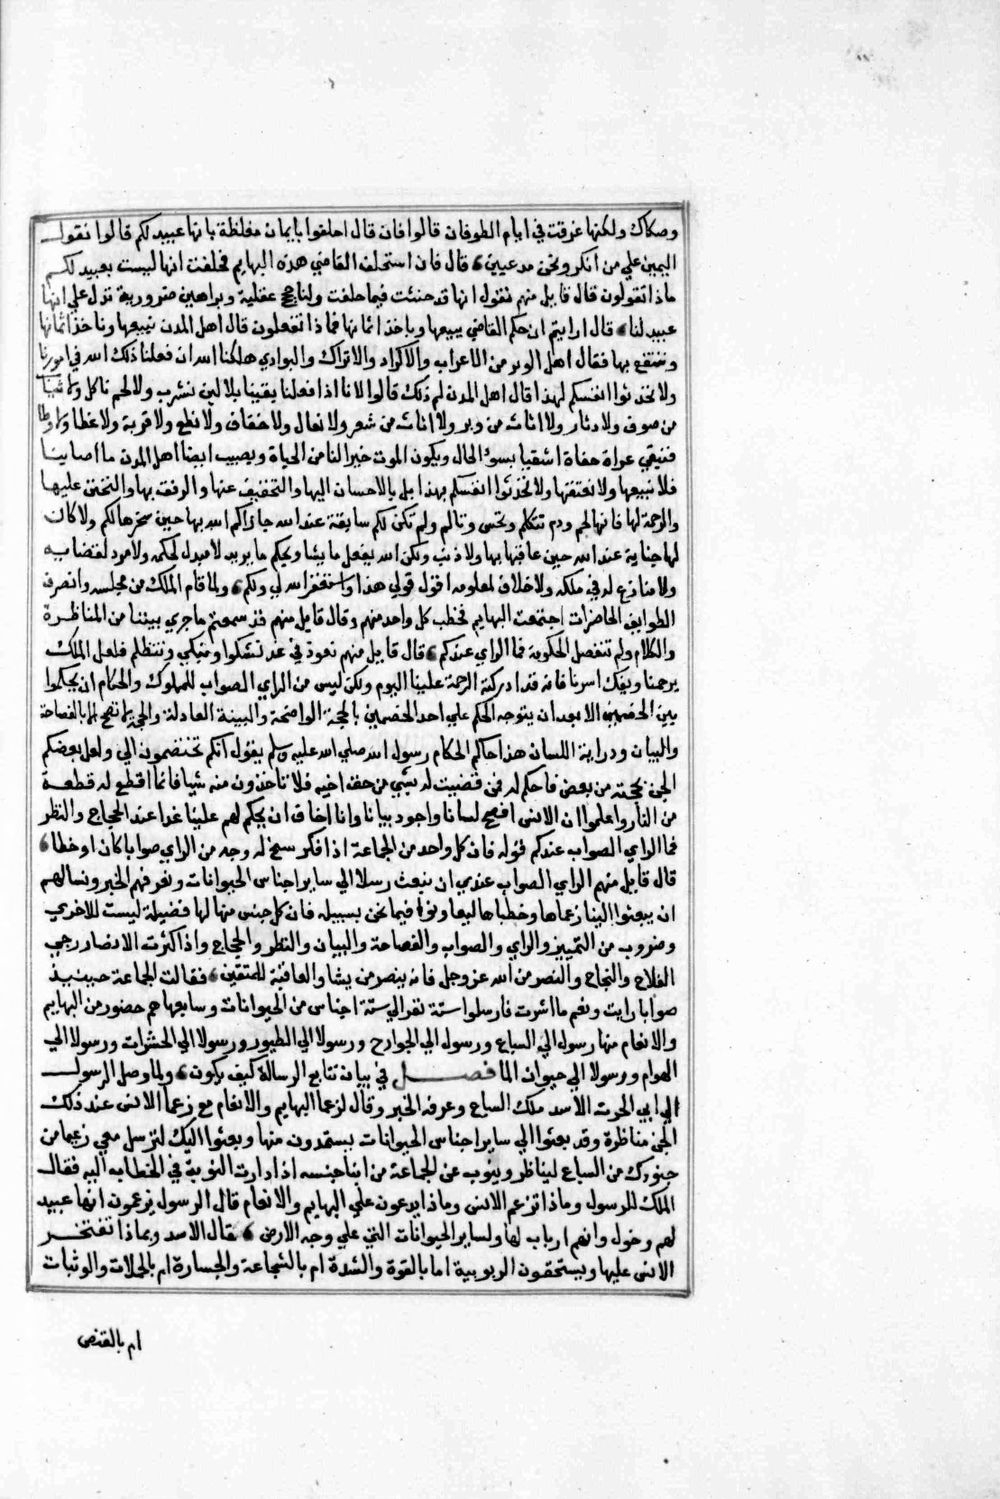 وصكاك ولكنها غرقت في ايام الطوفان قالوا فان قال احلفوا بايمان مغلظة بانها عبيد لكم قالوا نقول
اليمين علي من انكر ونحن مدعيين قال فان استحلف القاضي هذه البهايم فحلفت انها ليست بعبيد لكم
ماذا تقولون قال قايل منهم نقول انها قد حنثت فيما حلفت ولنا حجج عقلية وبراهين ضرورية تدل علي انها
عبيد لنا قال ارايتم ان حكم القاضي ببيعها وياخذ اثمانها فماذا تفعلون قال اهل المدن نبيعها وناخذ اثمانها
وننتفع بها فقال اهل الوبر من الاعراب والاكراد والاتراك والبوادي هلكنا الله ان فعلنا ذلك الله في امورنا
ولا تحدثوا انفسكم لهذا قال اهل المدن لم ذلك قالوا لانا اذا فعلنا بقينا بلا لبن نشرب ولا لحم ناكل ولا ثيابا
من صوف ولا دثار ولا اثاث من وبر ولا اثاث من شعر ولا نعال ولا خفاف ولا نطع ولا قربة ولا غطا ولا وطا
فنبقي عراة حفاة اشقيا بسوء الحال ويكون الموت خير لنا من الحياة ويصيب ايضا اهل المدن ما اصابنا
فلا نبيعها ولا نعتقها ولا تحدثوا انفسكم بهذا بل بالاحسان اليها والتخفيف عنها والرفق بها والتحنن عليها
والرحمة لها فانها لحم ودم تتكلم وتحس وتالم ولم تكن لكم سابقة عند الله جازاكم الله بها حين سخرها لكم ولا كان
لها جناية عند الله حين عاقبها بها ولا ذنب ولكن الله يفعل ما يشا ويحكم ما يريد لا مبدل لحكمه ولا مرد لقضايه
ولا منازع له في ملكه ولا خلاف لمعلومه اقول قولي هذا واستغفر الله لي ولكم ولما قام الملك من مجلسه وانصرف
الطوايف الحاضرات اجتمعت البهايم فخطب كل واحد منهم وقال قايل منهم قد سمعتم ما جري بيننا من المناظرة
والكلام ولم تنفصل الحكومة فما الراي عندكم قال قايل منهم نعود في غد نشكوا ونبكي ونتظلم فلعل الملك
يرحمنا ويفك اسرنا فانه قد ادركته الرحمة علينا اليوم ولكن ليس من الراي الصواب للملوك والحكام ان يحكموا
بين الخصمين الا بعد ان يتوجه الحكم علي احد الخصمين بالحجة الواضحة والبينة العادلة والحجة لا تصح الا بالفصاحة
والبيان ودراية اللسان هذا حاكم الحكام رسول الله صلي الله عليه وسلم يقول انكم تختصمون الي ولعل بعضكم
الحن بحجته من بعض فاحكم له فمن قضيت له بشي من حق اخيه فلا تاخذون منه شيا فانما اقطع له قطعة
من النار واعلموا ان الانس افصح لسانا واجود بيانا وانا اخاف ان يحكم لهم علينا غدا عند الحجاج والنظر
فما الراي الصواب عندكم قوله فان كل واحد من الجماعة اذا فكر سنح له وجه من الراي صوابا كان او خطا
قال قايل منهم الراي الصواب عندي ان نبعث رسلا الي ساير اجناس الحيوانات ونعرفهم الخبر ونسالهم
ان يبعثوا الينا زعماها وخطباها ليعاونونا فيما نحن بسبيله فان كل جنس منها لها فضيلة ليست للاخري
وضروب من التمييز والراي والصواب والفصاحة والبيان والنظر والحجاج واذا كثرت الانصار رجي
الفلاح والنجاح والنصر من الله عز وجل فانه ينصر من يشا والعاقبة للمتقين فقالت الجماعة حينيذ
صوابا رايت ونعم ما اشرت فارسلوا ستة نفر الي ستة اجناس من الحيوانات وسابعها هم حضور من البهايم
والانعام منها رسول الي السباع ورسول الي الجوارح ورسولا الي الطيور ورسولا الي الحشرات ورسولا الي
الهوام ورسولا الي حيوان الما فصل في بيان تتابع الرسالة كيف يكون ولما وصل الرسول
الي ابي الحرث الاسد ملك السباع وعرفه الخبر وقال لزعما البهايم والانعام مع زعما الانس عند ذلك
الجن مناظرة وقد بعثوا الي ساير اجناس الحيوانات يستمدون منها وبعثوا اليك لترسل معي زعيما من
جنودك من السباع ليناظر وينوب عن الجماعة من ابنا جنسه اذا دارت النوبة في الخطاب اليه فقال
الملك للرسول وماذا تزعم الانس وماذا يدعون علي البهايم والانعام قال الرسول يزعمون انها عبيد
لهم وخول وانهم ارباب لها ولساير الحيوانات التي علي وجه الارض فقال الاسد وبماذا تفتخر
الانس عليها ويستحقون الربوبية اما بالقوة والشدة ام بالشجاعة والجسارة ام بالحملات والوثبات
ام بالقنص